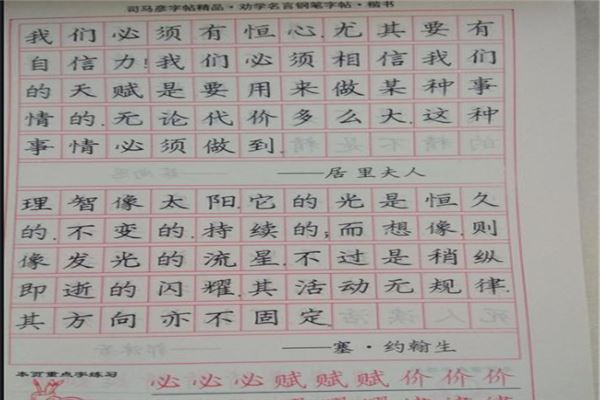 司马彦字帖精品·劝学名言钢笔字帖·楷书
我们必须有恒心,尤其要有
自信力!我们必须相信我们
的天赋是要用来做某种事
情的,无论代价多么大,这种
事情必须做到.
——居里夫人
理智像太阳,它的光是恒久
的,不变的,持续的;而想像,则
像发光的流星,不过是稍纵
即逝的闪耀,其活动无规律,
其方向亦不固定.
——塞·约翰生
本页重点字练习
必必必赋赋赋价价价